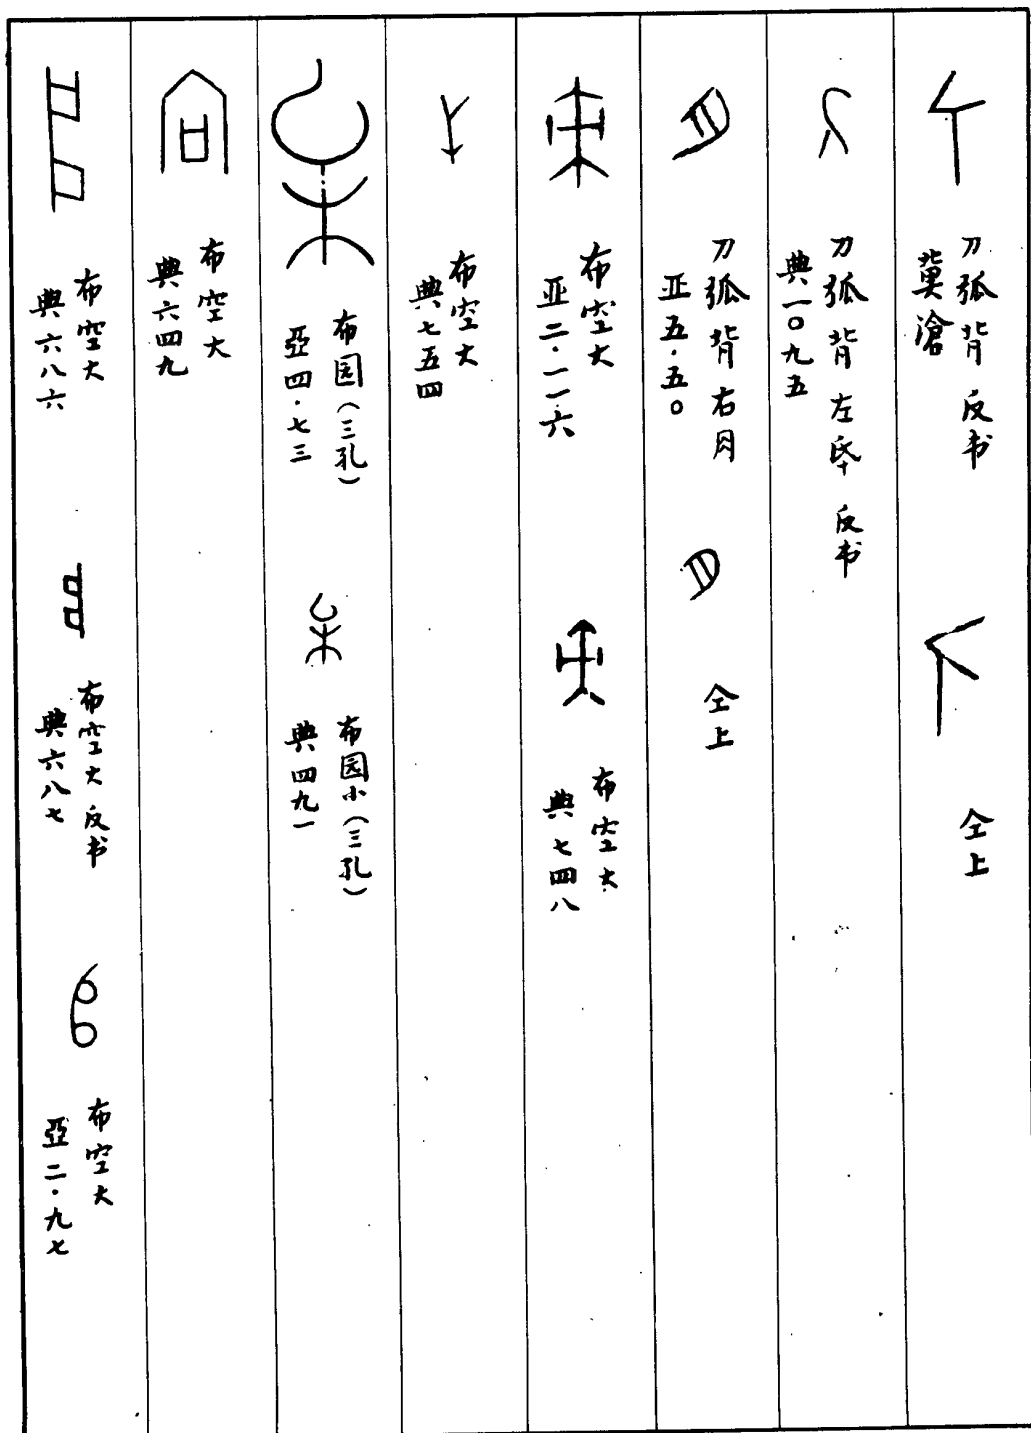 刀弧背 反书
冀滄
仝上
刀弧背 左 反书
典一〇九五
刀弧背右
亚五·五〇
仝上
布空大
亚二·一一六
布空大
典七四八
布空大
典七五四
布园（三孔）
亞四·七三
布园小（三孔）
典四九一
布空大
典六四九
布空大
典六八六
布空大 反书
典六八七
布空大
亞二·九七